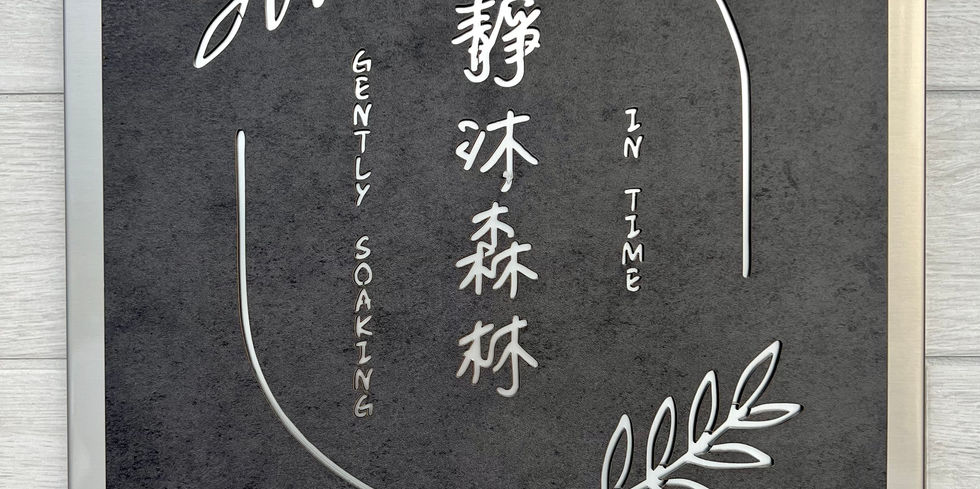 GENTLY SOAKING
靜沐森林
IN TIME